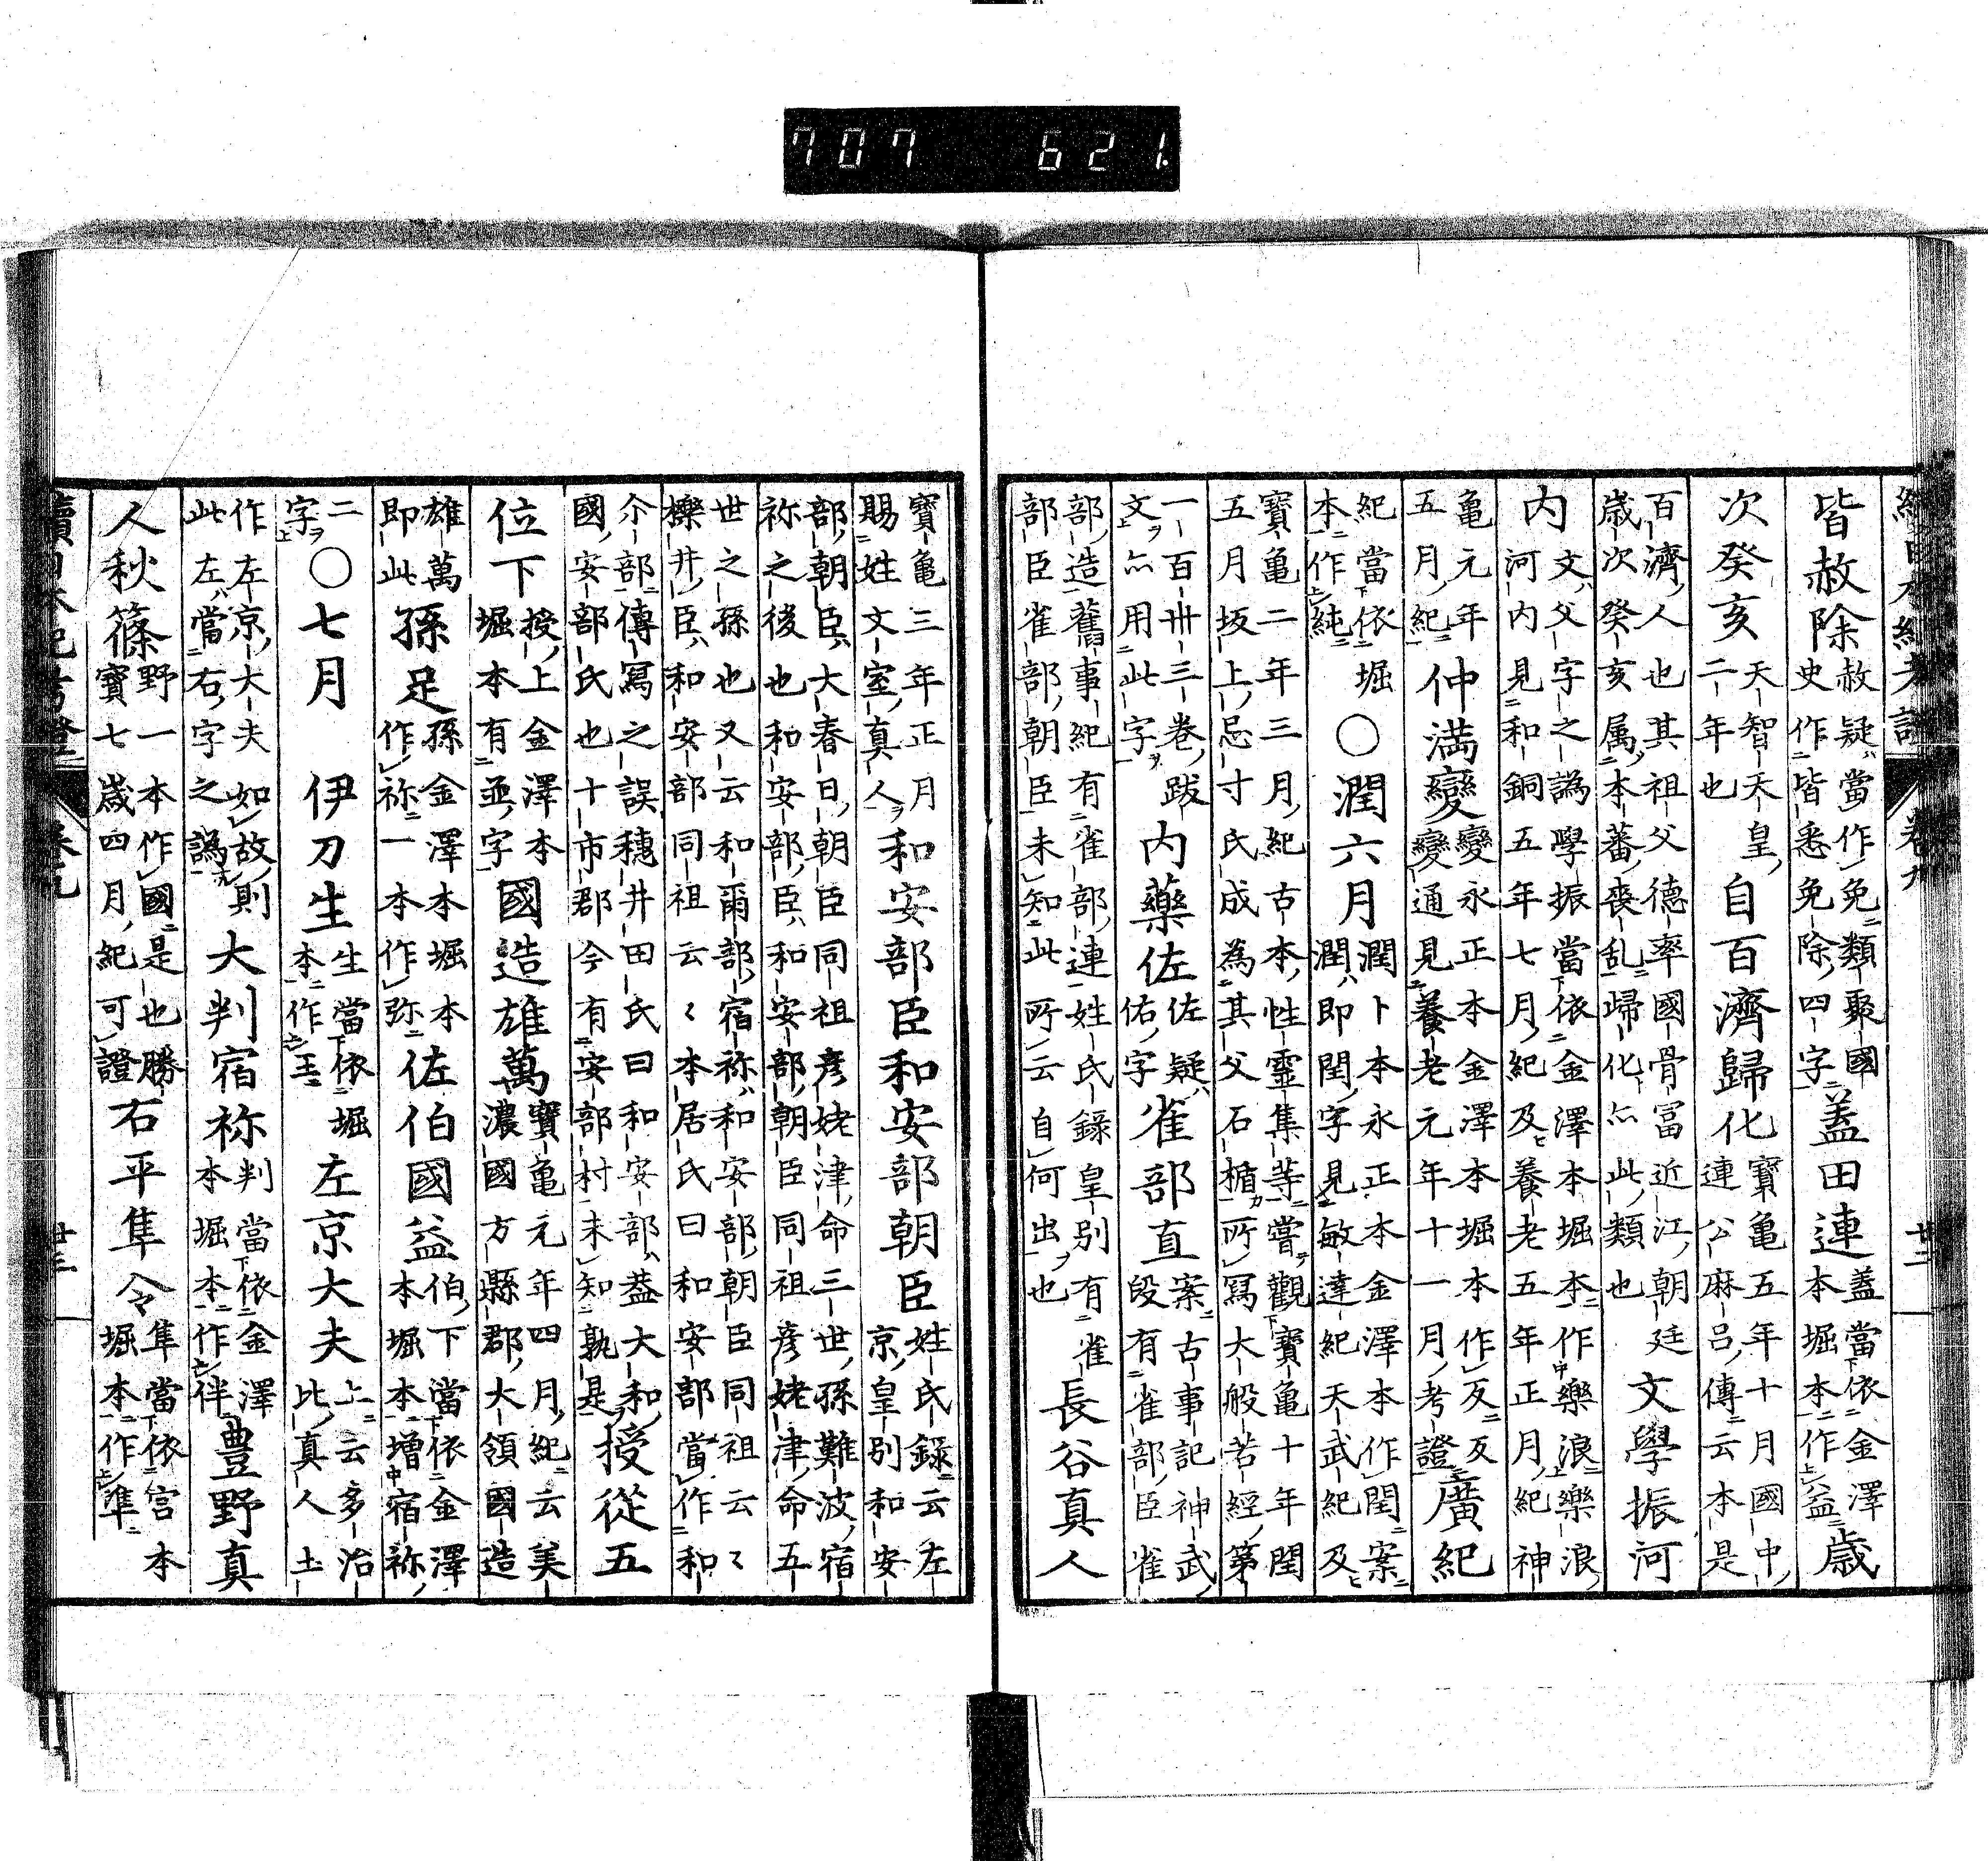 707 621.
皆赦除赦疑當作免類聚國史作皆悉免除四字蓋田連蓋當依金澤本堀本作益歳
次癸亥天智天皇二年也自百濟歸化寶亀五年十月國中連公麻呂傳云本是
百濟人也其祖父德率國骨冨近江朝廷歳次癸亥属本蕃喪乱歸化亦此類也文學振河
内文父字之譌學振當依金澤本堀本作樂浪樂浪河内見和銅五年七月紀及養老五年正月紀神
亀元年五月紀仲満變變永正本金澤本堀本作叐叐變通見養老元年十一月考證廣紀
紀當依堀本作純〇潤六月潤卜本永正本金澤本作閏案潤即閏字見敏達紀天武紀及
寶亀二年三月紀古本性靈集等嘗觀寶亀十年閏五月坂上忌寸氏成為其父石楯所寫大般若經第
一百卅三卷跋文亦用此字内藥佐佐疑佑字雀部直案古事記神武段有雀部臣雀
部造舊事紀有雀部連姓氏録皇別有雀部臣雀部朝臣未知此所云自何出也長谷真人
寶亀三年正月賜姓文室真人和安部臣和安部朝臣姓氏録云左京皇別和安
部朝臣大春日朝臣同祖彦姥津命三世孫難波宿祢之後也和安部臣和安部朝臣同祖彦姥津命五
世之孫也又云和爾部宿祢和安部朝臣同祖云〻櫟井臣和安部同祖云〻本居氏曰和安部當作和
介部傳寫之誤穗井田氏曰和安部蓋大和國安部氏也十市郡今有安部村未知孰是授從五
位下授上金澤本堀本有並字國造雄萬寶亀元年四月紀云美濃國方縣郡大領國造
雄萬即此孫足孫金澤本堀本作祢一本作弥佐伯國益伯下當依金澤本堀本増宿祢
二字〇七月 伊刀生生當依堀本作王左京大夫上云多治比真人土
作左京大夫如故則此左當右字之譌大判宿祢判當依金澤本堀本作伴豊野真
人秋篠野一本作國是也勝寶七歳四月紀可證右平隼令隼當依宮本堀本作準